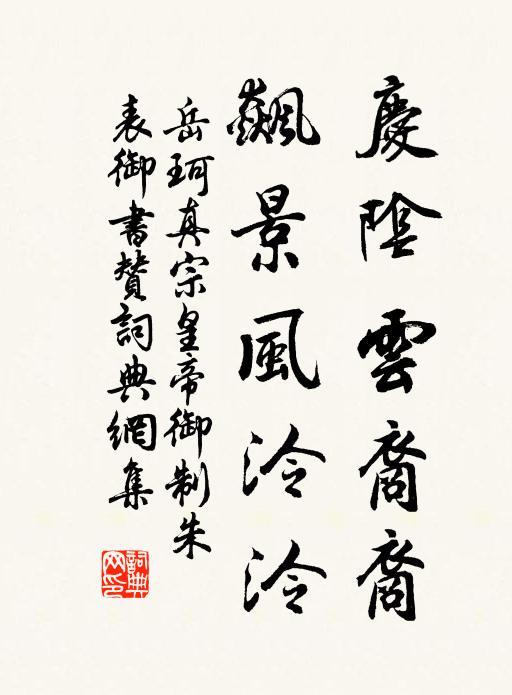 慶陰雲裔裔
飆景風泠泠
岳珂真宗皇帝御制朱
表御書賛詞典網集
詞典网印